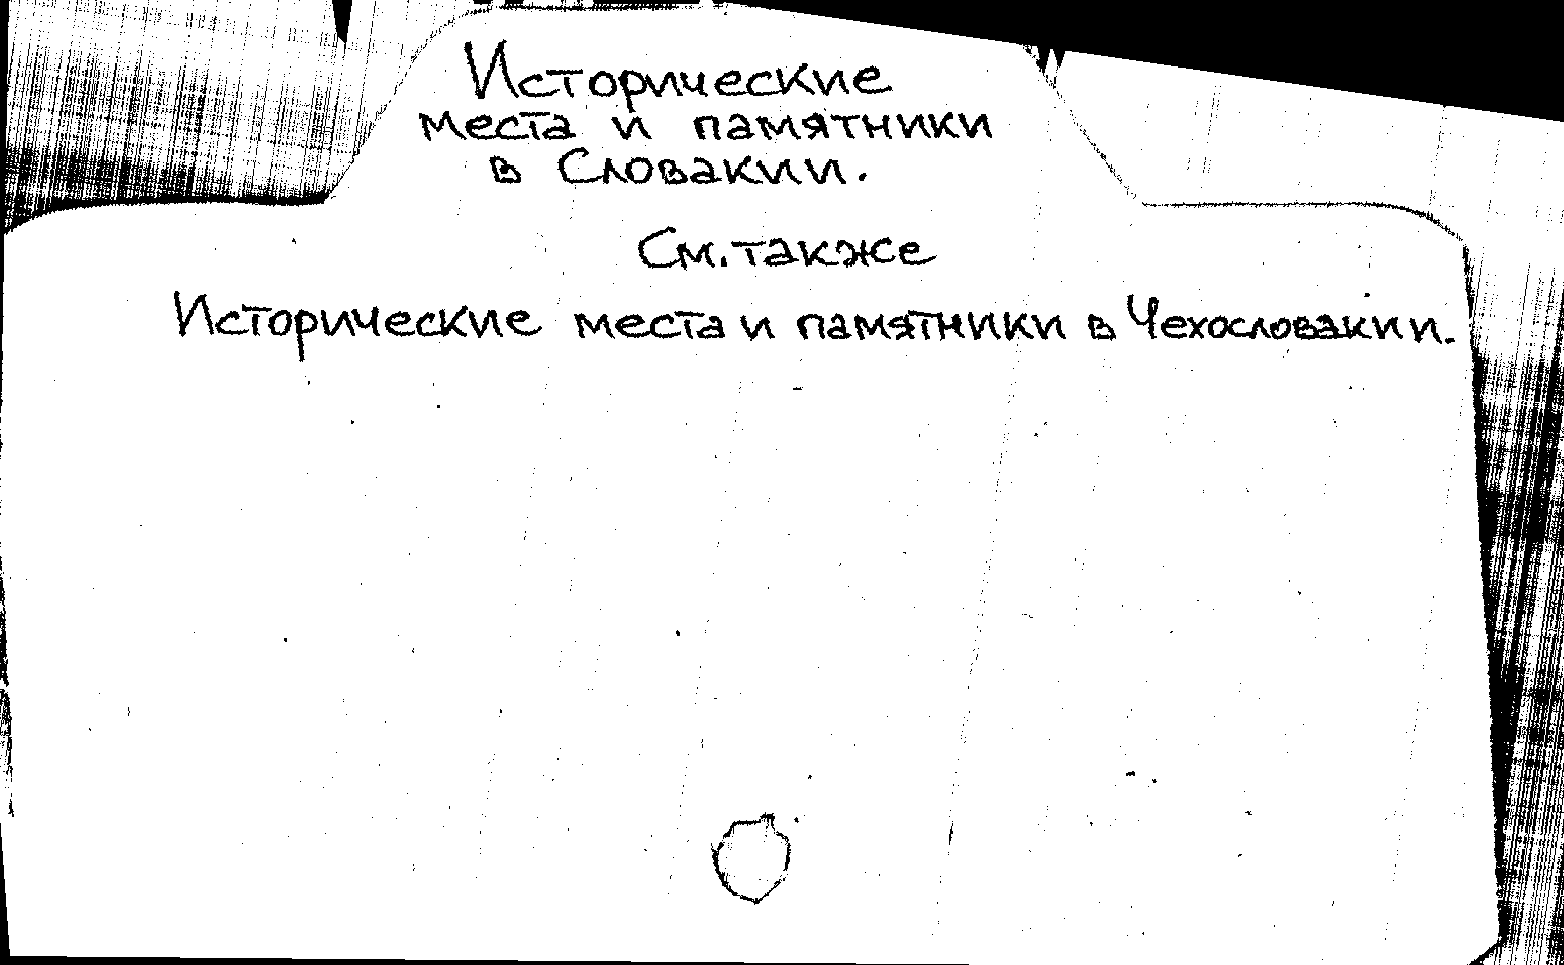 Исторические
места и памятники
в Словакии.
См. также
Исторические места и памятники в Чехословакии.